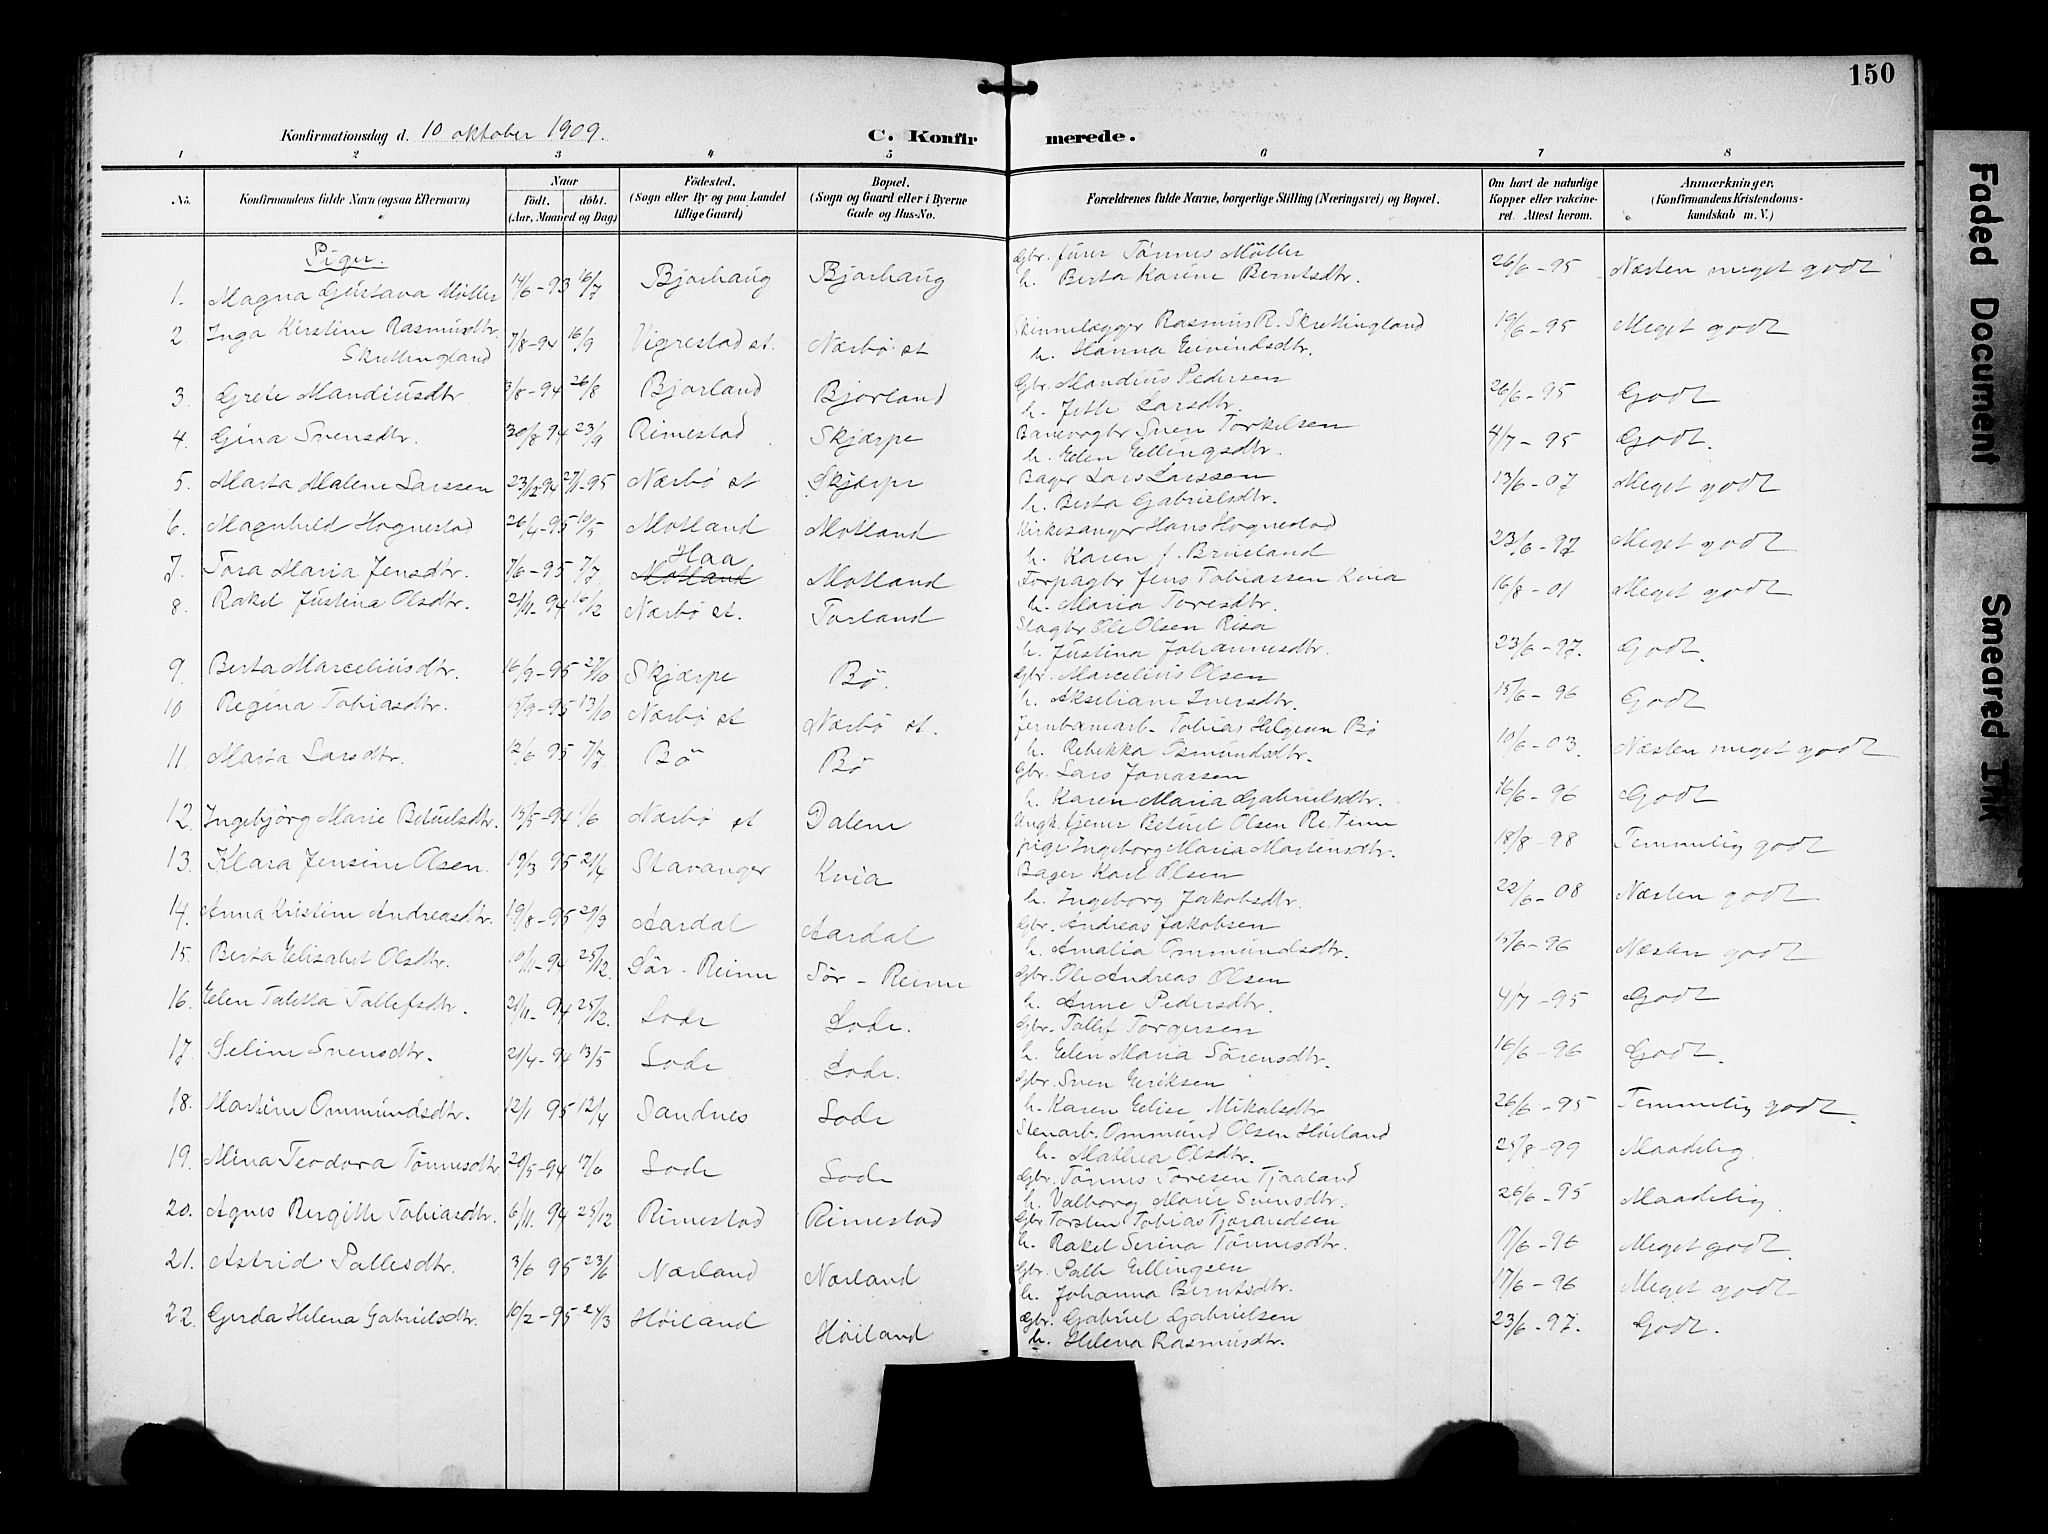 150
Konfirmationsdag d. 10 oktober 1909. C. Konfirmerede.
1 2 3 4 5 6 7 8
No. Konfirmandens fulde Navn (ogsaa Efternavn) Naar født. døbt. (Aar, Maaned og Dag) Fødested. (Sogn eller By og paa Landet tillige Gaard) Bopæl. (Sogn og Gaard eller i Byerne Gade og Hus-No.) Forældrenes fulde Navne, borgerlige Stilling (Næringsvei) og Bopæl. Om havt de naturlige Kopper eller vakcineret. Attest herom. Anmærkninger. (Konfirmandens Kristendomskundskab m. V.)
Piger.
1. Magna Gustava Møller 14/6-93 16/7 Bjorhaug Bjorhaug Gbr. Tønnes Møller
h. Berta Karine Berntsdtr. 26/6-95 Næsten meget godt
2. Inga Kirstine Rasmusdtr. Skrettingland 7/8-94 16/9 Vigrestad st. Nærbø st Rasmus R. Skrettingland
h. Hanna Eivindsdtr. 19/6-95 Meget godt
3. Grete Mandiusdtr. 3/8-94 26/8 Bjorland Bjorland Gbr. Mandius Pedersen
h. Jette Larsdtr. 26/6-95 Godt
4. Gina Svensdtr. 30/8-94 23/9 Rimestad Skjærpe Banevogtr Sven Torkelsen
h. Elen Ellingsdtr. 4/7-95 Godt.
5. Marta Malene Larssen 23/12-94 27/1-95 Nærbø st Skjærpe Bager Lars Larssen
h. Berta Gabrielsdtr. 13/6-07 Meget godt
6. Magnhild Hognestad 26/4-95 19/5 Motland Motland Kirkesanger Hans Hognestad
h. Karen f. Brueland 23/6-97 Meget godt
7. Tora Maria Jensdtr. 7/6-95 7/7. Haa Motland Motland Forpagtr Jens Tobiassen Kvia
h. Maria Toresdtr. 16/8-01 Meget godt
8. Rakel Justina Olsdtr. 21/11-94 16/12 Nærbø st. Torland Slagtr Ole Olsen Risa
h. Justina Johannesdtr. 23/6-97. Godt.
9. Berta Marceliusdtr. 16/9-95 27/10 Skjærpe Bø. Gbr. Marcelius Olsen
h. Akseliane Iversdtr. 15/6-96 Godt
10 Regina Tobiasdtr. 15/9-95 13/10 Nærbø st Nærbø st. Jernbanearb. Tobias Helgesen Bø
h. Rebekka Osmundsdtr. 10/6-03. Næsten meget godt
11. Marta Larsdtr. 12/6 95 7/7. Bø Bø Gbr. Lars Jonassen
h. Karen Maria Gabrielsdtr. 16/6-96 Godt
12. Ingebjørg Marie Betuelsdtr. 15/5-94 1/6 Nærbø st Dalene Ungk. tjener Betuel Olsen Re Time
pige Ingeborg Maria Martensdtr. 18/8-98 Temmelig godt
13. Klara Jensine Olsen. 19/3 95 21/4 Stavanger Kvia Bager Karl Olsen
h. Ingeborg Jakobsdtr. 22/6-08 Næsten godt
14. Anna Kristine Andreasdtr. 19/8-95 29/9 Aardal Aardal Gbr. Andreas Jakobsen
h. Amalia Ommundsdtr. 15/6-96 Næsten godt
15. Berta Elisabet Olsdtr. 19/11-94 25/12. Sør-Reime Sør-Reime Gbr. Ole Andreas Olsen
h. Anne Pedersdtr. 4/7-95 Godt
16. Elen Taletta Tallefsdtr. 21/11-94 25/12. Lode Lode. Gbr. Tallef Torgersen
h. Elen Maria Sørensdtr. 16/6-96 Godt.
17. Seline Svensdtr. 21/4-94 13/5 Lode Lode. Gbr. Sven Eriksen
h. Karen Elise Mikalsdtr 26/6-95 Temmelig godt.
18. Martine Ommundsdtr. 12/1 95 12/4 Sandnes Lode Stenarb. Ommund Olsen Høiland
h. Mathea Olsdtr. 25/8-99 Maadelig
19. Mina Teodora Tønnesdtr. 20/5-94 17/6 Lode Lode Gbr. Tønnes Toresen Tjaaland
h. Valborg Marie Svensdtr. 26/6-95 Maadelig
20. Agnes Bergitte Tobiasdtr. 6/11. 94 25/12 Rimestad Rimestad Gbr Torsten Tobias Tjorandsen
h. Rakel Serina Tønnesdtr. 17/6-96 Meget godt.
21. Astrid Pallesdtr. 3/6 95 23/6 Nærland Nærland Gbr. Palle Ellingsen
h. Johanna Berntsdtr. 17/6-96 Meget godt
22. Gerda Helena Gabrielsdtr. 10/2-95 24/3 Høiland Høiland Gbr. Gabriel Gabrielsen
h. Helena Rasmusdtr. 23/6-97. Godt.
Faded Document
Smeared Ink